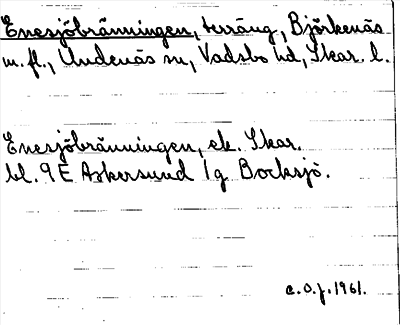 Enesjöbränningen, terräng, Björkenäs
m.fl., Undenäs sn, Vadsbo hd, Skar. l.
Enesjöbränningen, ek. Skar.
bl. 9 E Askersund 1g Bocksjö.
c.o.j. 1961.